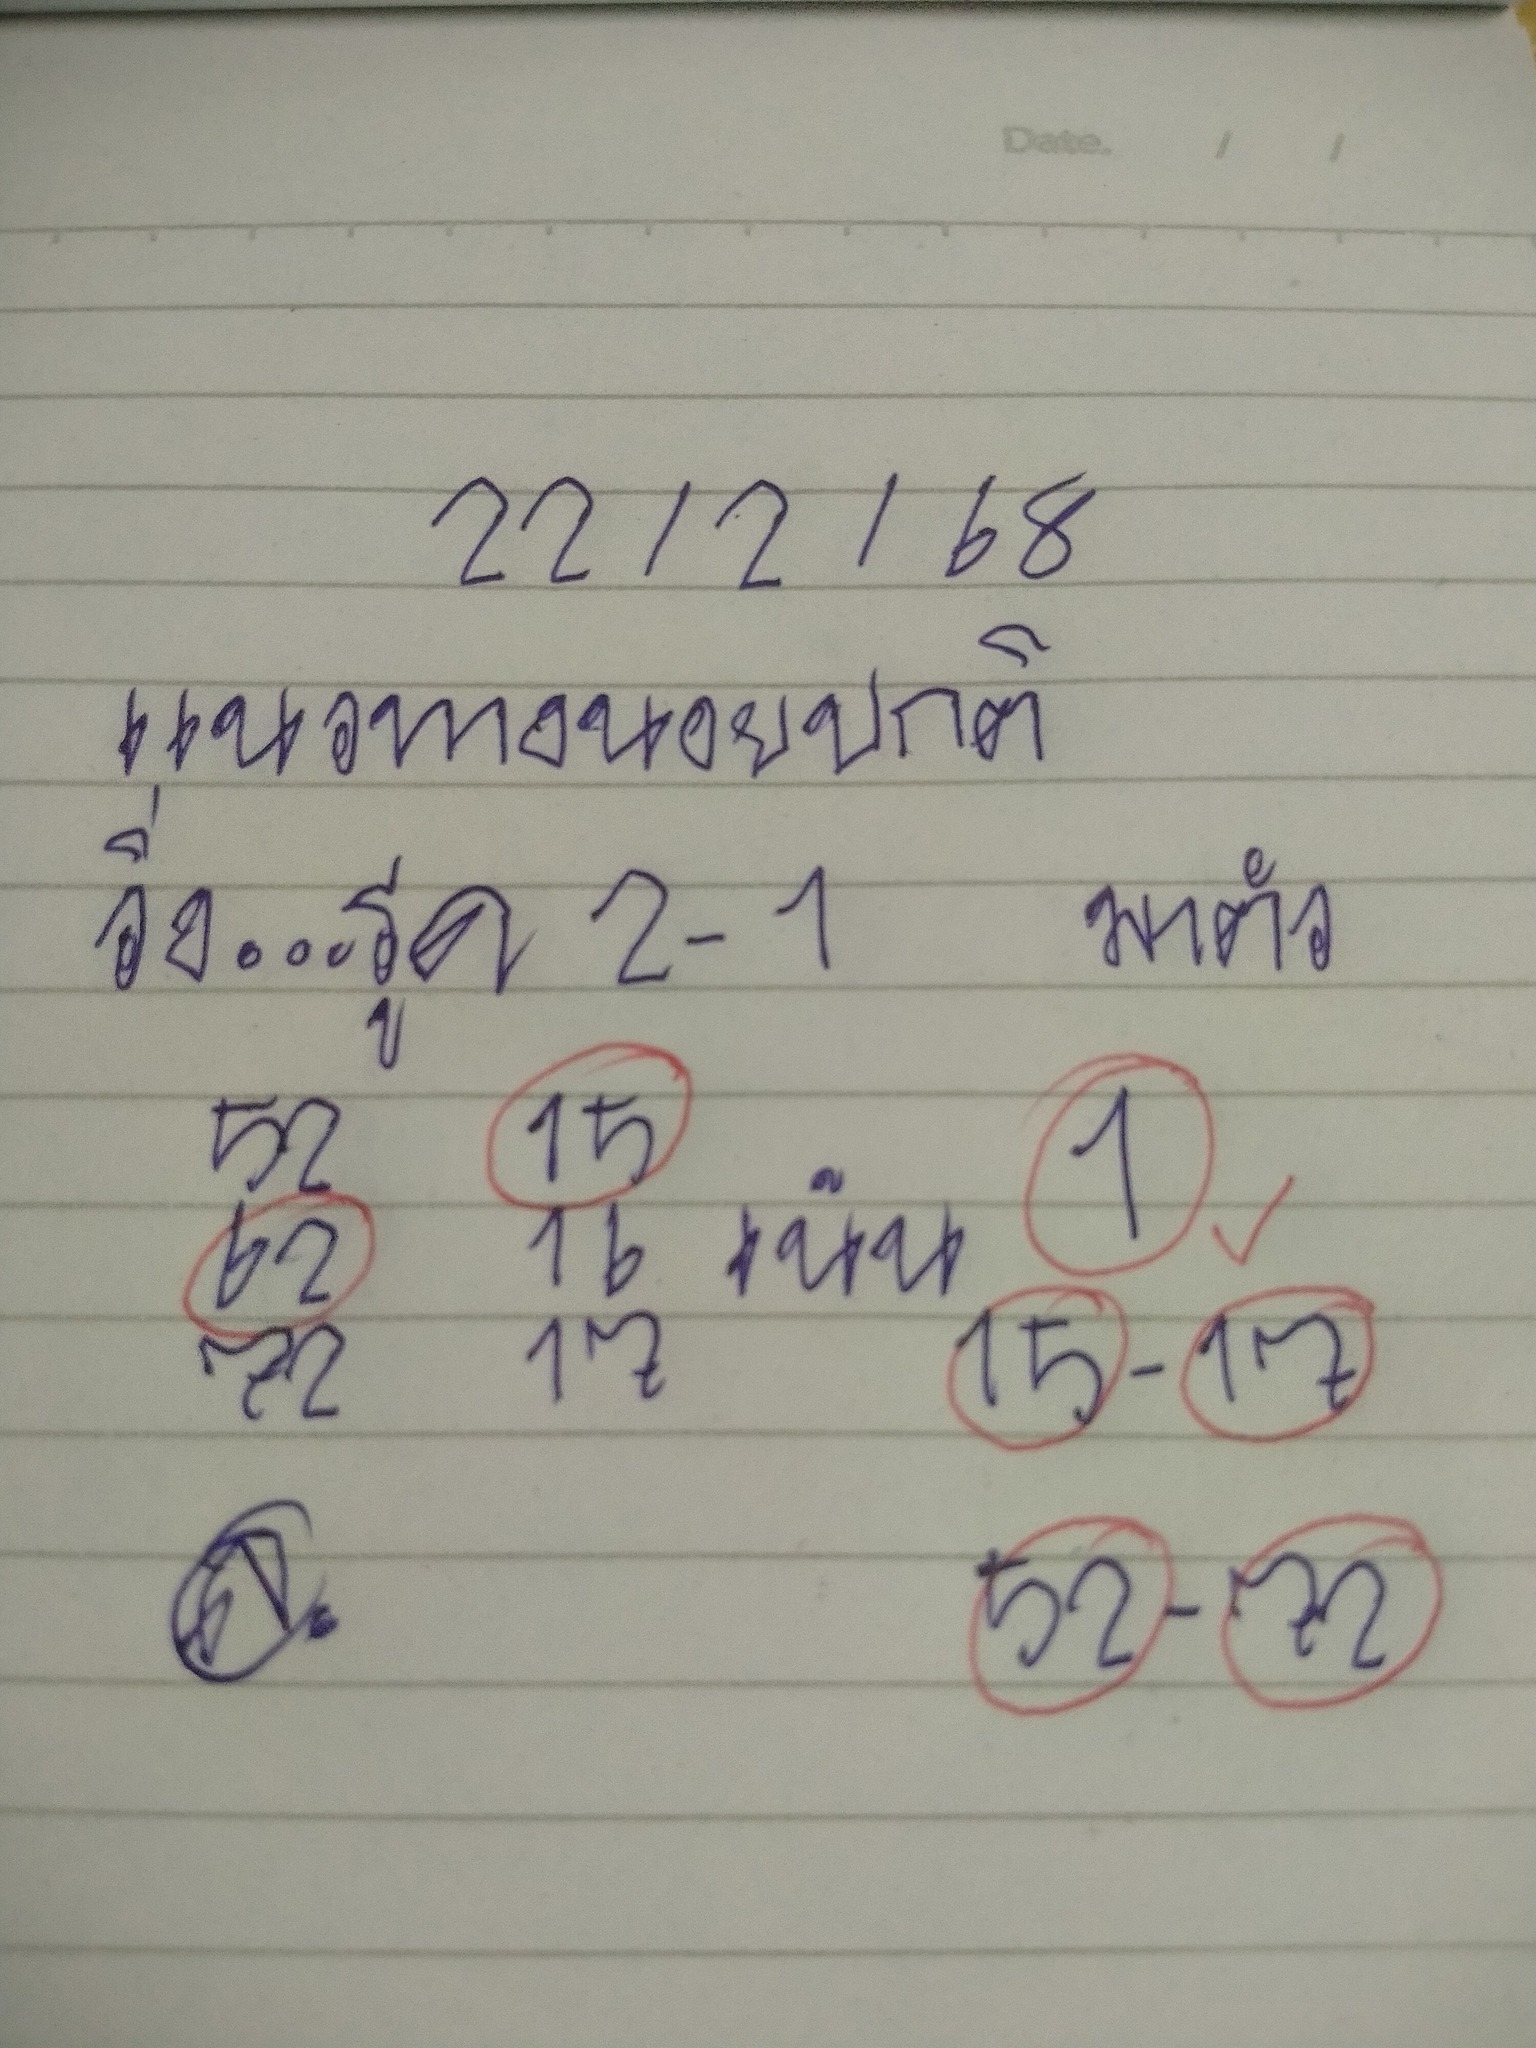 Date. / /
22/2/68
แนวทางนอยปกติ
วิ่ง...รูด 2-1 มาตัว
52 15 1
62 16 เน้น
72 17 15-17
52-72